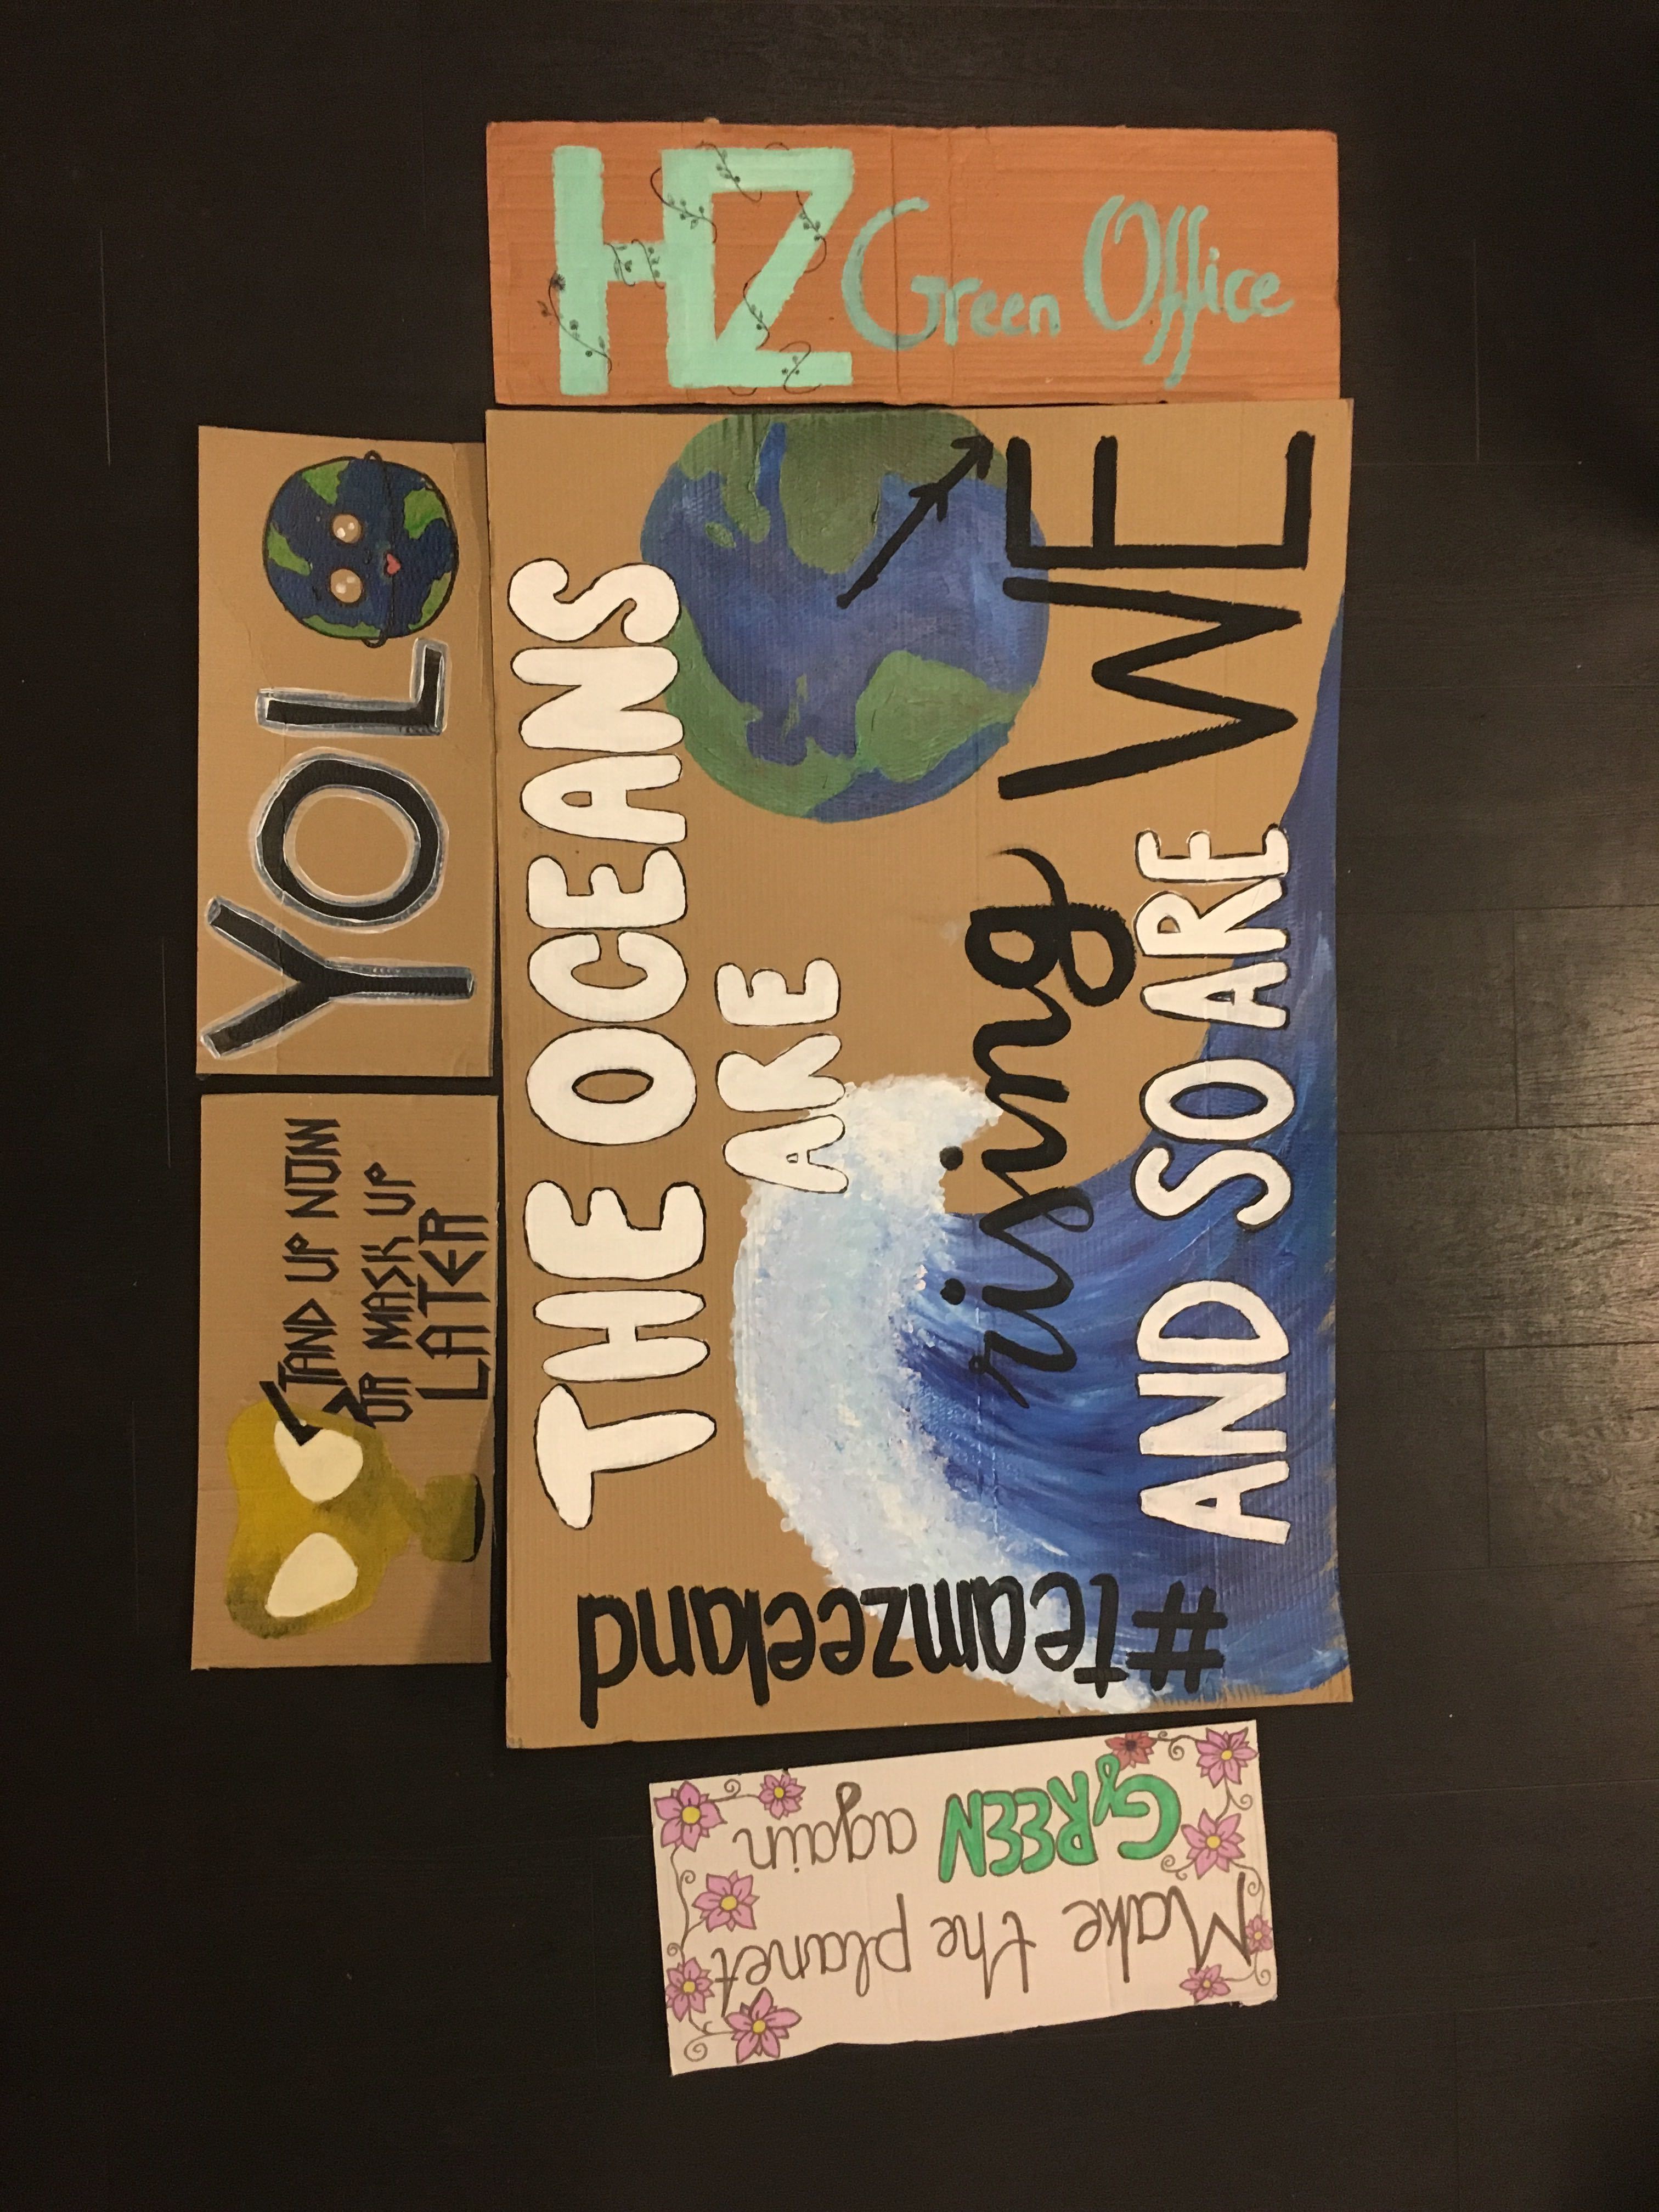 HZ Green Office
YOL
STAND UP NOW
OR MASK UP
LATER
THE OCEANS
ARE
rising
AND SO ARE
WE
#teamzeeland
Make the planet
GREEN again